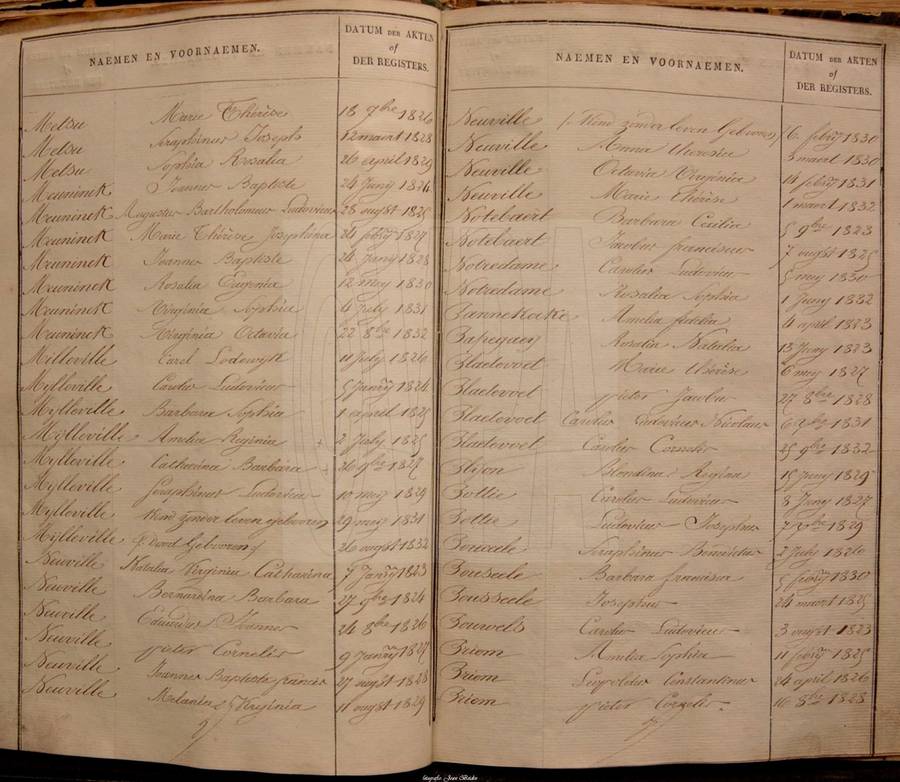 NAEMEN EN VOORNAEMEN. DATUM DER AKTEN
of
DER REGISTERS.
Melsu Marie Thérèse 18 7bre 1826
Melsu Seraphinus Joseph 12 maart 1828
Melsu Sophia Rosalia 26 april 1829
Meuninck Joannes Baptiste 24 Juny
Meuninck Augustus Bartholomeus Ludovicus 28 augst 1825
Meuninck Marie Thérèse Josephina 24 febry 1827
Meuninck Joannes Baptiste 24 Juny 1828
Meuninck Rosalia Eugenia 12 mey 1830
Meuninck Virginia Sophia 4 July 1831
Meuninck Virginia Octavia 22 8bre 1832
Milleville Carel Lodewyk 11 July 1826
Mylleville Carolus Ludovicus 5 Janry 1824
Mylleville Barbara Sophia 1 april 1825
Mylleville Amelia Reginia 2 July 1825
Mylleville Catharina Barbara 26 9bre 1827
Mylleville Seraphinus Ludovicus 10 mey 1829
Mylleville Kind zonder leven geboren 29 mey 1831
Mylleville Dood Geboren 26 augst 1832
Neuville Natalia Virginia Catharina 7 Janry 1823
Neuville Bernardina Barbara 27 9bre 1824
Neuville Eduardus Joannes 24 8bre 1826
Neuville Pieter Cornelis 9 Janry 1827
Neuville Joannes Baptiste francis 27 augst 1828
Neuville Melanie Virginia 11 augst 1829
NAEMEN EN VOORNAEMEN. DATUM DER AKTEN
of
DER REGISTERS.
Neuville Kind zonder leven Geboren 26 febry 1830
Neuville Anna theresia 3 maart 1830
Neuville Octavia Virginia 14 febry 1831
Neuville Marie thérèse 1 maart 1832
Notebaert Barbara Cecilia 5 9bre 1823
Notebaert Jacobus franciscus 7 augst 1825
Notredame Carolus Ludovicus 5 mey 1830
Notredame Rosalia Sophia 1 Juny 1832
Pannekoeke Amelia fidelia 4 april 1823
Rosalia Natalia 13 Juny 1823
Plaetevoet Marie thérèse 6 mey 1827
Plaetevoet pieter Jacobus 27 8bre 1828
Plaetevoet Carolus Ludovicus Nicolaus 6 9bre 1831
Plaetevoet Carolus Cornelis 25 9bre 1832
Blondina Regina 15 Juny 1829
Pottie Carolus Ludovicus 8 Juny 1827
Pottie Ludovicus Josephus 7bre 1829
Seraphinus Benedictus 2 July 1826
Pouseele Barbara francisca 5 febry 1830
Pousseele Josephus 24 maart 1825
Pouwels Carolus Ludovicus 3 augst 1823
Priem Amelia Sophia 11 febry 1825
Priem Leopoldus Constantinus 24 april 1826
Priem pieter Cornelis 16 8bre 1828